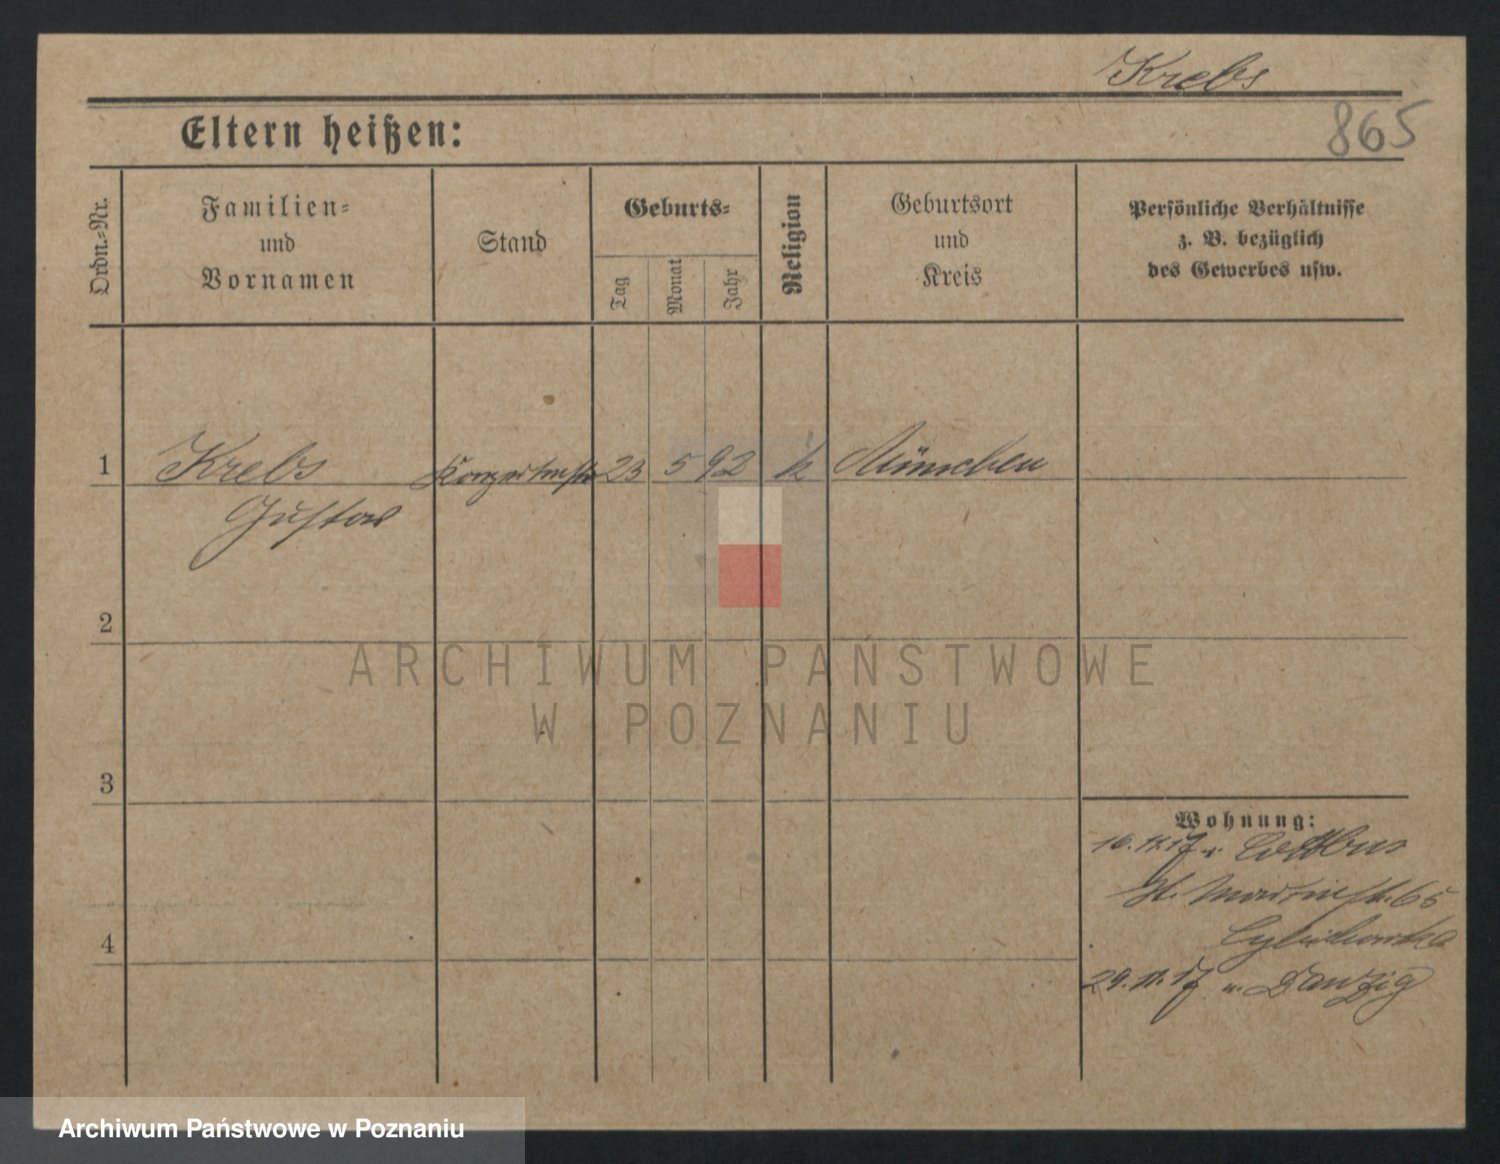 Krebs
865
Eltern heißen:
Ordn.=Nr.
Familien=
und
Vornamen
Stand
Geburts=
Tag
Monat
Jahr
Religion
Geburtsort
und
Kreis
Persönliche Verhältnisse
z. B. bezüglich
des Gewerbes usw.
1 Krebs 23 5 92 k München
Gustav
2
3
4
Wohnung:
16.11.17 v. Cottbus
St. Martinstr. 65
29.11.17 n. Danzig
ARCHIWUM PAŃSTWOWE
W POZNANIU
Archiwum Państwowe w Poznaniu